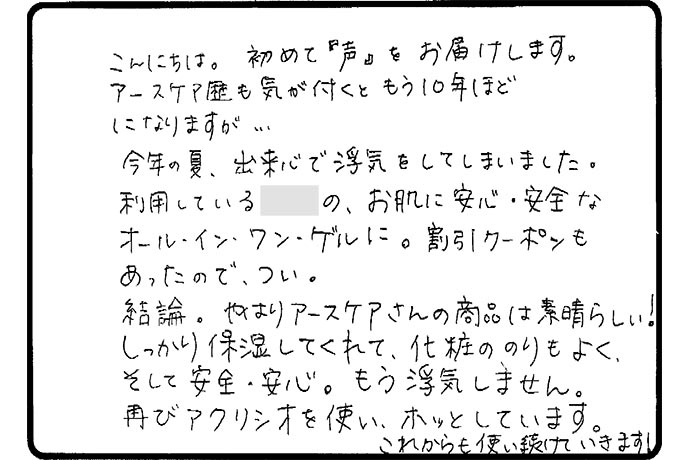 こんにちは。初めて『声』をお届けします。
アースケア歴も気が付くともう10年ほど
になりますが…
今年の夏、出来心で浮気をしてしまいました。
利用している の、お肌に安心・安全な
オール・イン・ワン・ゲルに。割引クーポンも
あったので、つい。
結論。やはりアースケアさんの商品は素晴らしい!
しっかり保湿してくれて、化粧ののりもよく、
そして安全・安心。もう浮気しません。
再びアクリシオを使い、ホッとしています。
これからも使い続けていきます!